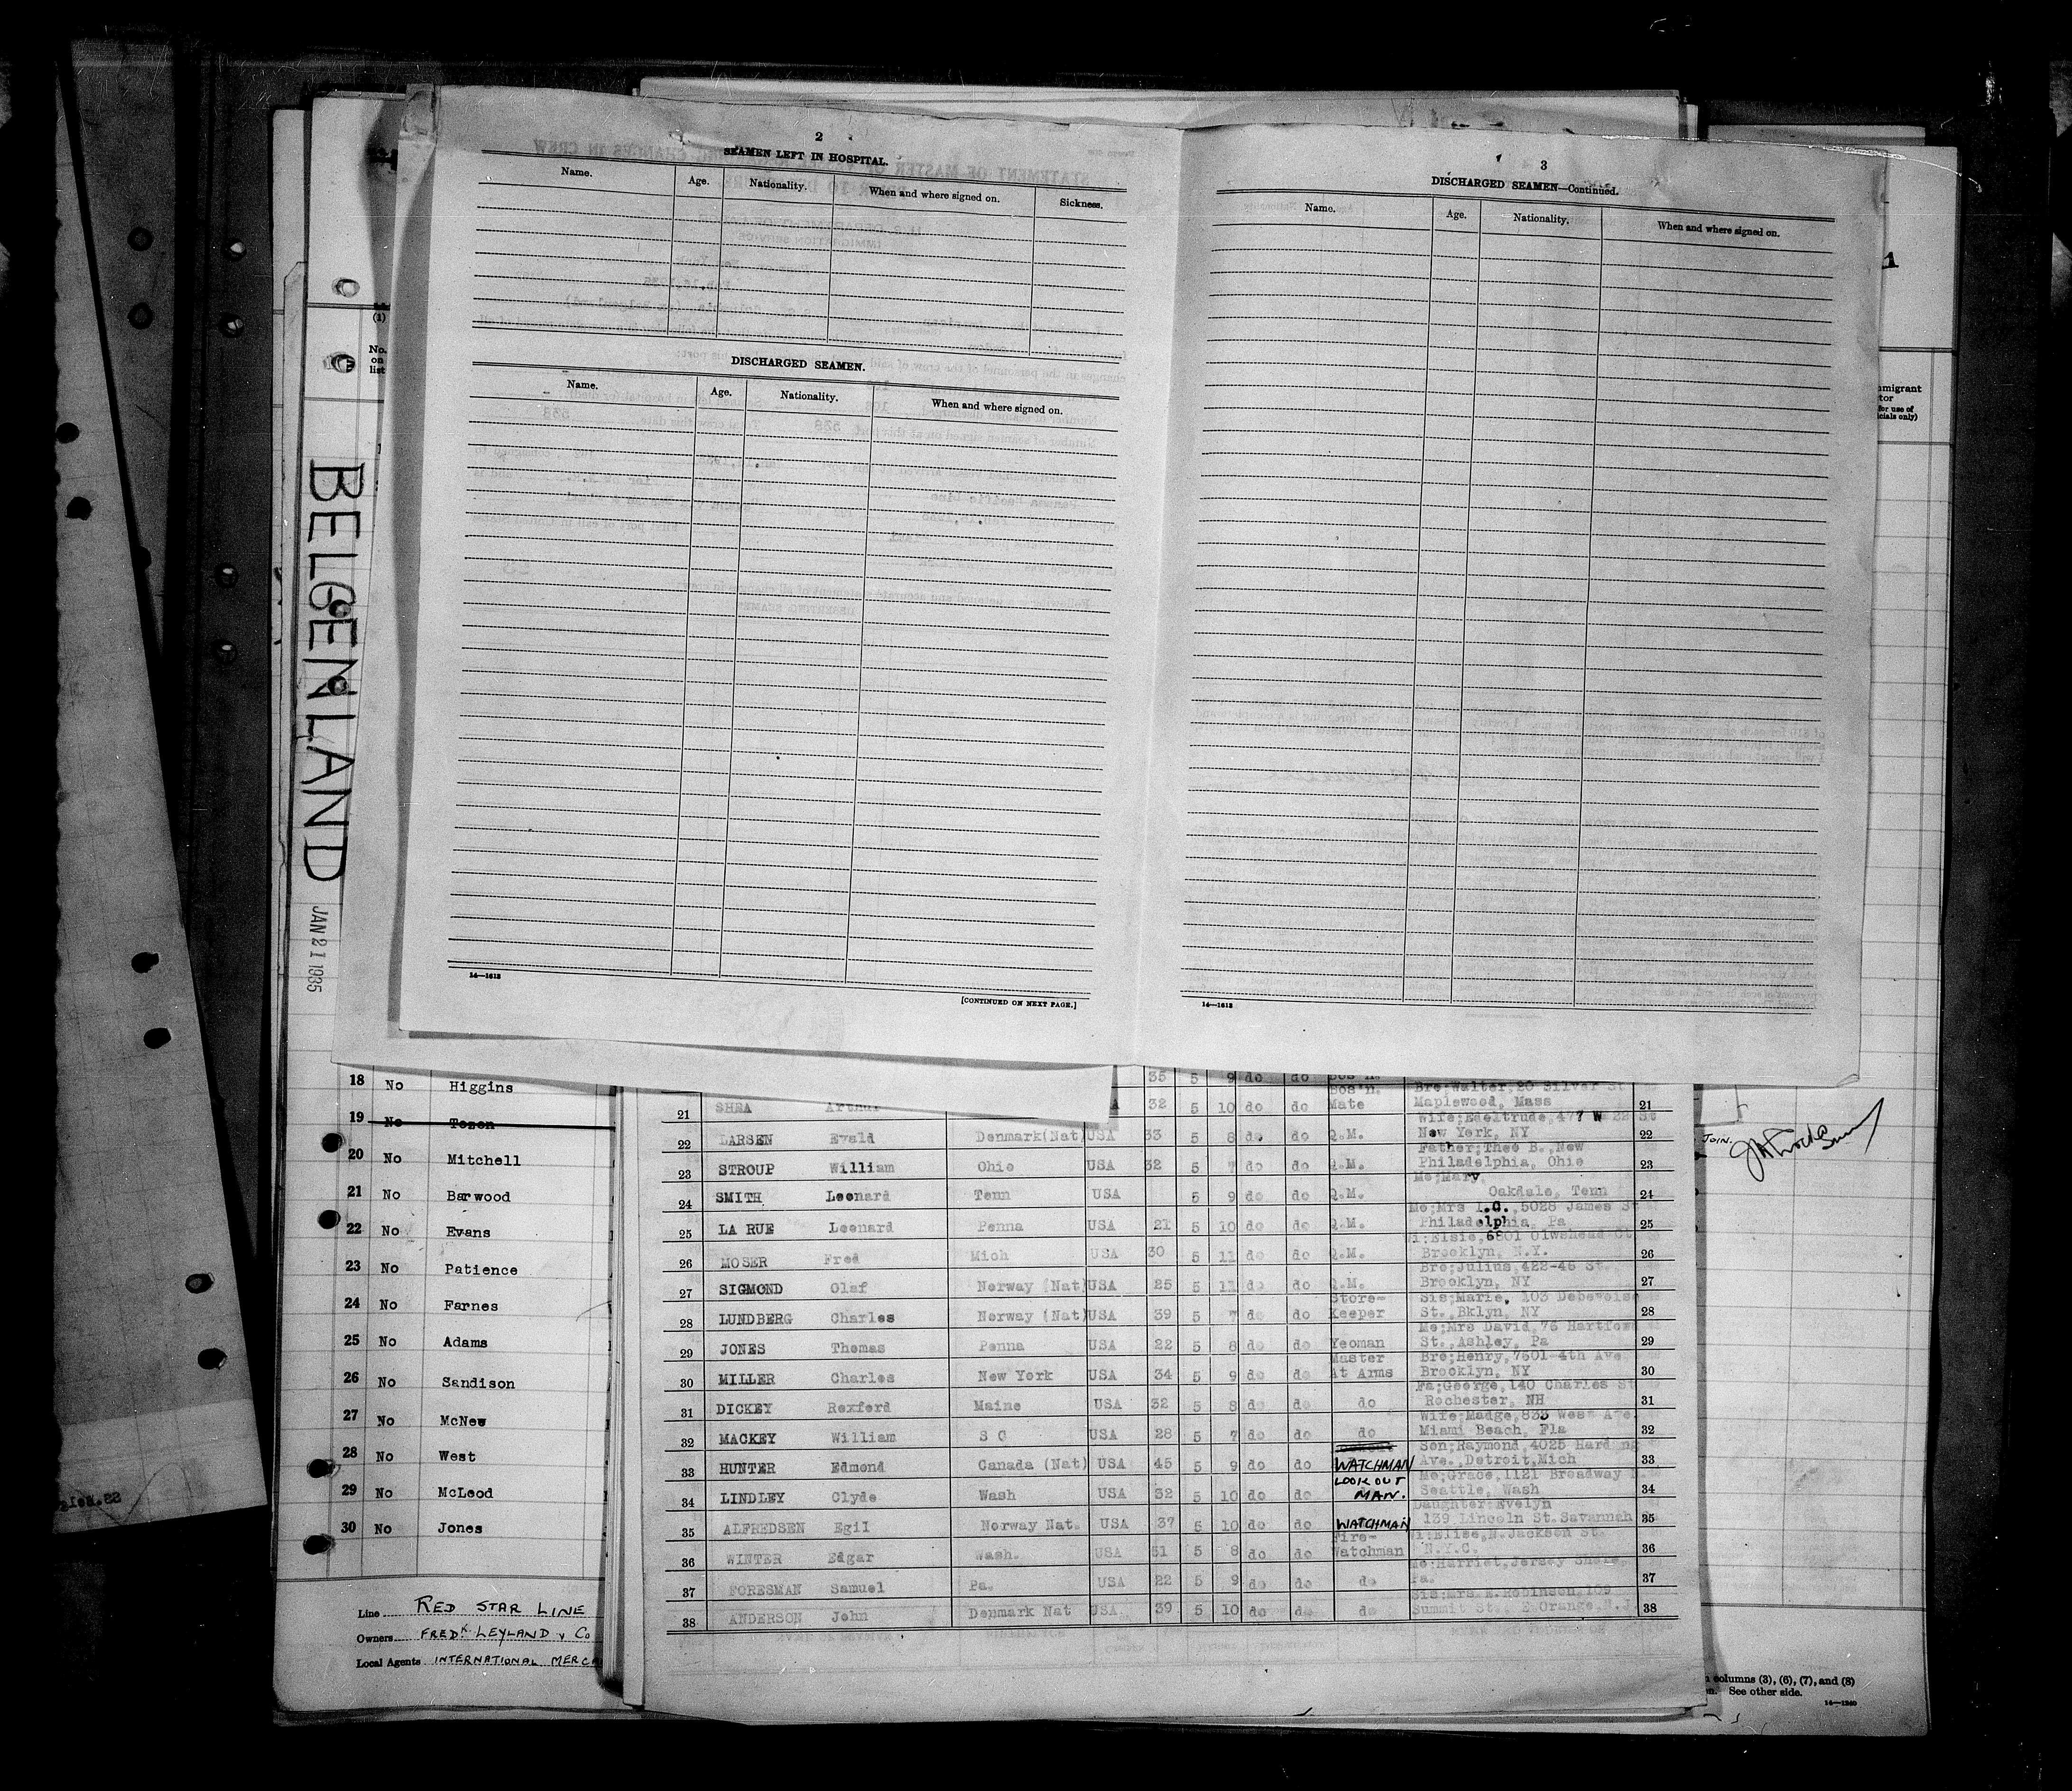 2
SEAMEN LEFT IN HOSPITAL.
Name. Age. Nationality. When and where signed on. Sickness.
DISCHARGED SEAMEN.
Name. Age. Nationality. When and where signed on.
14—1613
[CONTINUED ON NEXT PAGE.]
3
DISCHARGED SEAMEN—Continued.
Name. Age. Nationality. When and where signed on.
14—1613
(1)
No.
on
list
BELGENLAND
JAN 21 1935
18 No Higgins
19 No Tozen
20 No Mitchell
21 No Barwood
22 No Evans
23 No Patience
24 No Farnes
25 No Adams
26 No Sandison
27 No McNew
28 No West
29 No McLeod
30 No Jones
Line RED STAR LINE
Owners FREDK LEYLAND & Co
Local Agents INTERNATIONAL MERC
35 5 9 do do Bos'n.
Bro;Walter,20 Silver St
21 SHEA Arthur 32 5 10 do do Bos'n. Mate Maplewood, Mass 21
Wife;Edeltrude,477 W 22 St
22 LARSEN Evald Denmark(Nat) USA 33 5 8 do do Q.M. New York, NY 22
Father;Theo B.,New
23 STROUP William Ohio USA 32 5 7 do do Q.M. Philadelphia, Ohio 23
Mo;Mary,
24 SMITH Leonard Tenn USA 5 9 do do Q.M. Oakdale, Tenn 24
Mo;Mrs I.C.,5028 James St
25 LA RUE Leonard Penna USA 21 5 10 do do Q.M. Philadelphia, Pa 25
26 MOSER Fred Mich USA 30 5 11 do do Q.M. Brooklyn, N.Y. 26
Bro;Julius,422-46 St.
27 SIGMOND Olaf Norway (Nat) USA 25 5 11 do do Q.M. Brooklyn, NY 27
Sis;Marie, 103 Debevoise
28 LUNDBERG Charles Norway (Nat) USA 39 5 7 do do Store-Keeper St., Bklyn, NY 28
Mo;Mrs David,76 Hartfow
29 JONES Thomas Penna USA 22 5 8 do do Yeoman St.,Ashley, Pa 29
Bro;Henry,7601-4th Ave
30 MILLER Charles New York USA 34 5 9 do do Master At Arms Brooklyn, NY 30
Fa;George,140 Charles St
31 DICKEY Rexford Maine USA 32 5 8 do do do Rochester, NH 31
Wife;Madge,835 West Ave.
32 MACKEY William S C USA 28 5 7 do do do Miami Beach, Fla 32
Son;Raymond,4025 Harding
33 HUNTER Edmond Canada (Nat) USA 45 5 9 do do WATCHMAN Ave.,Detroit,Mich 33
Mo;Grace,1121 Broadway
34 LINDLEY Clyde Wash USA 32 5 10 do do LOOK OUT MAN. Seattle, Wash 34
Daughter:Evelyn
35 ALFREDSEN Egil Norway Nat. USA 37 5 10 do do WATCHMAN 139 Lincoln St.Savannah 35
Elise,N.Jackson St.
36 WINTER Edgar Wash. USA 51 5 8 do do Fire-Watchman N.Y.C. 36
Mo;Harriet,Jersey Shore,
37 FORESMAN Samuel Pa. USA 22 5 9 do do do Pa. 37
Sis;Mrs E.Robinson,109
38 ANDERSON John Denmark Nat USA 39 5 10 do do do Summit St. E.Orange.N.J. 38
1
mmigrant
tor
for use of
icials only)
JOIN.
columns (3), (6), (7), and (8)
See other side.
14—1240